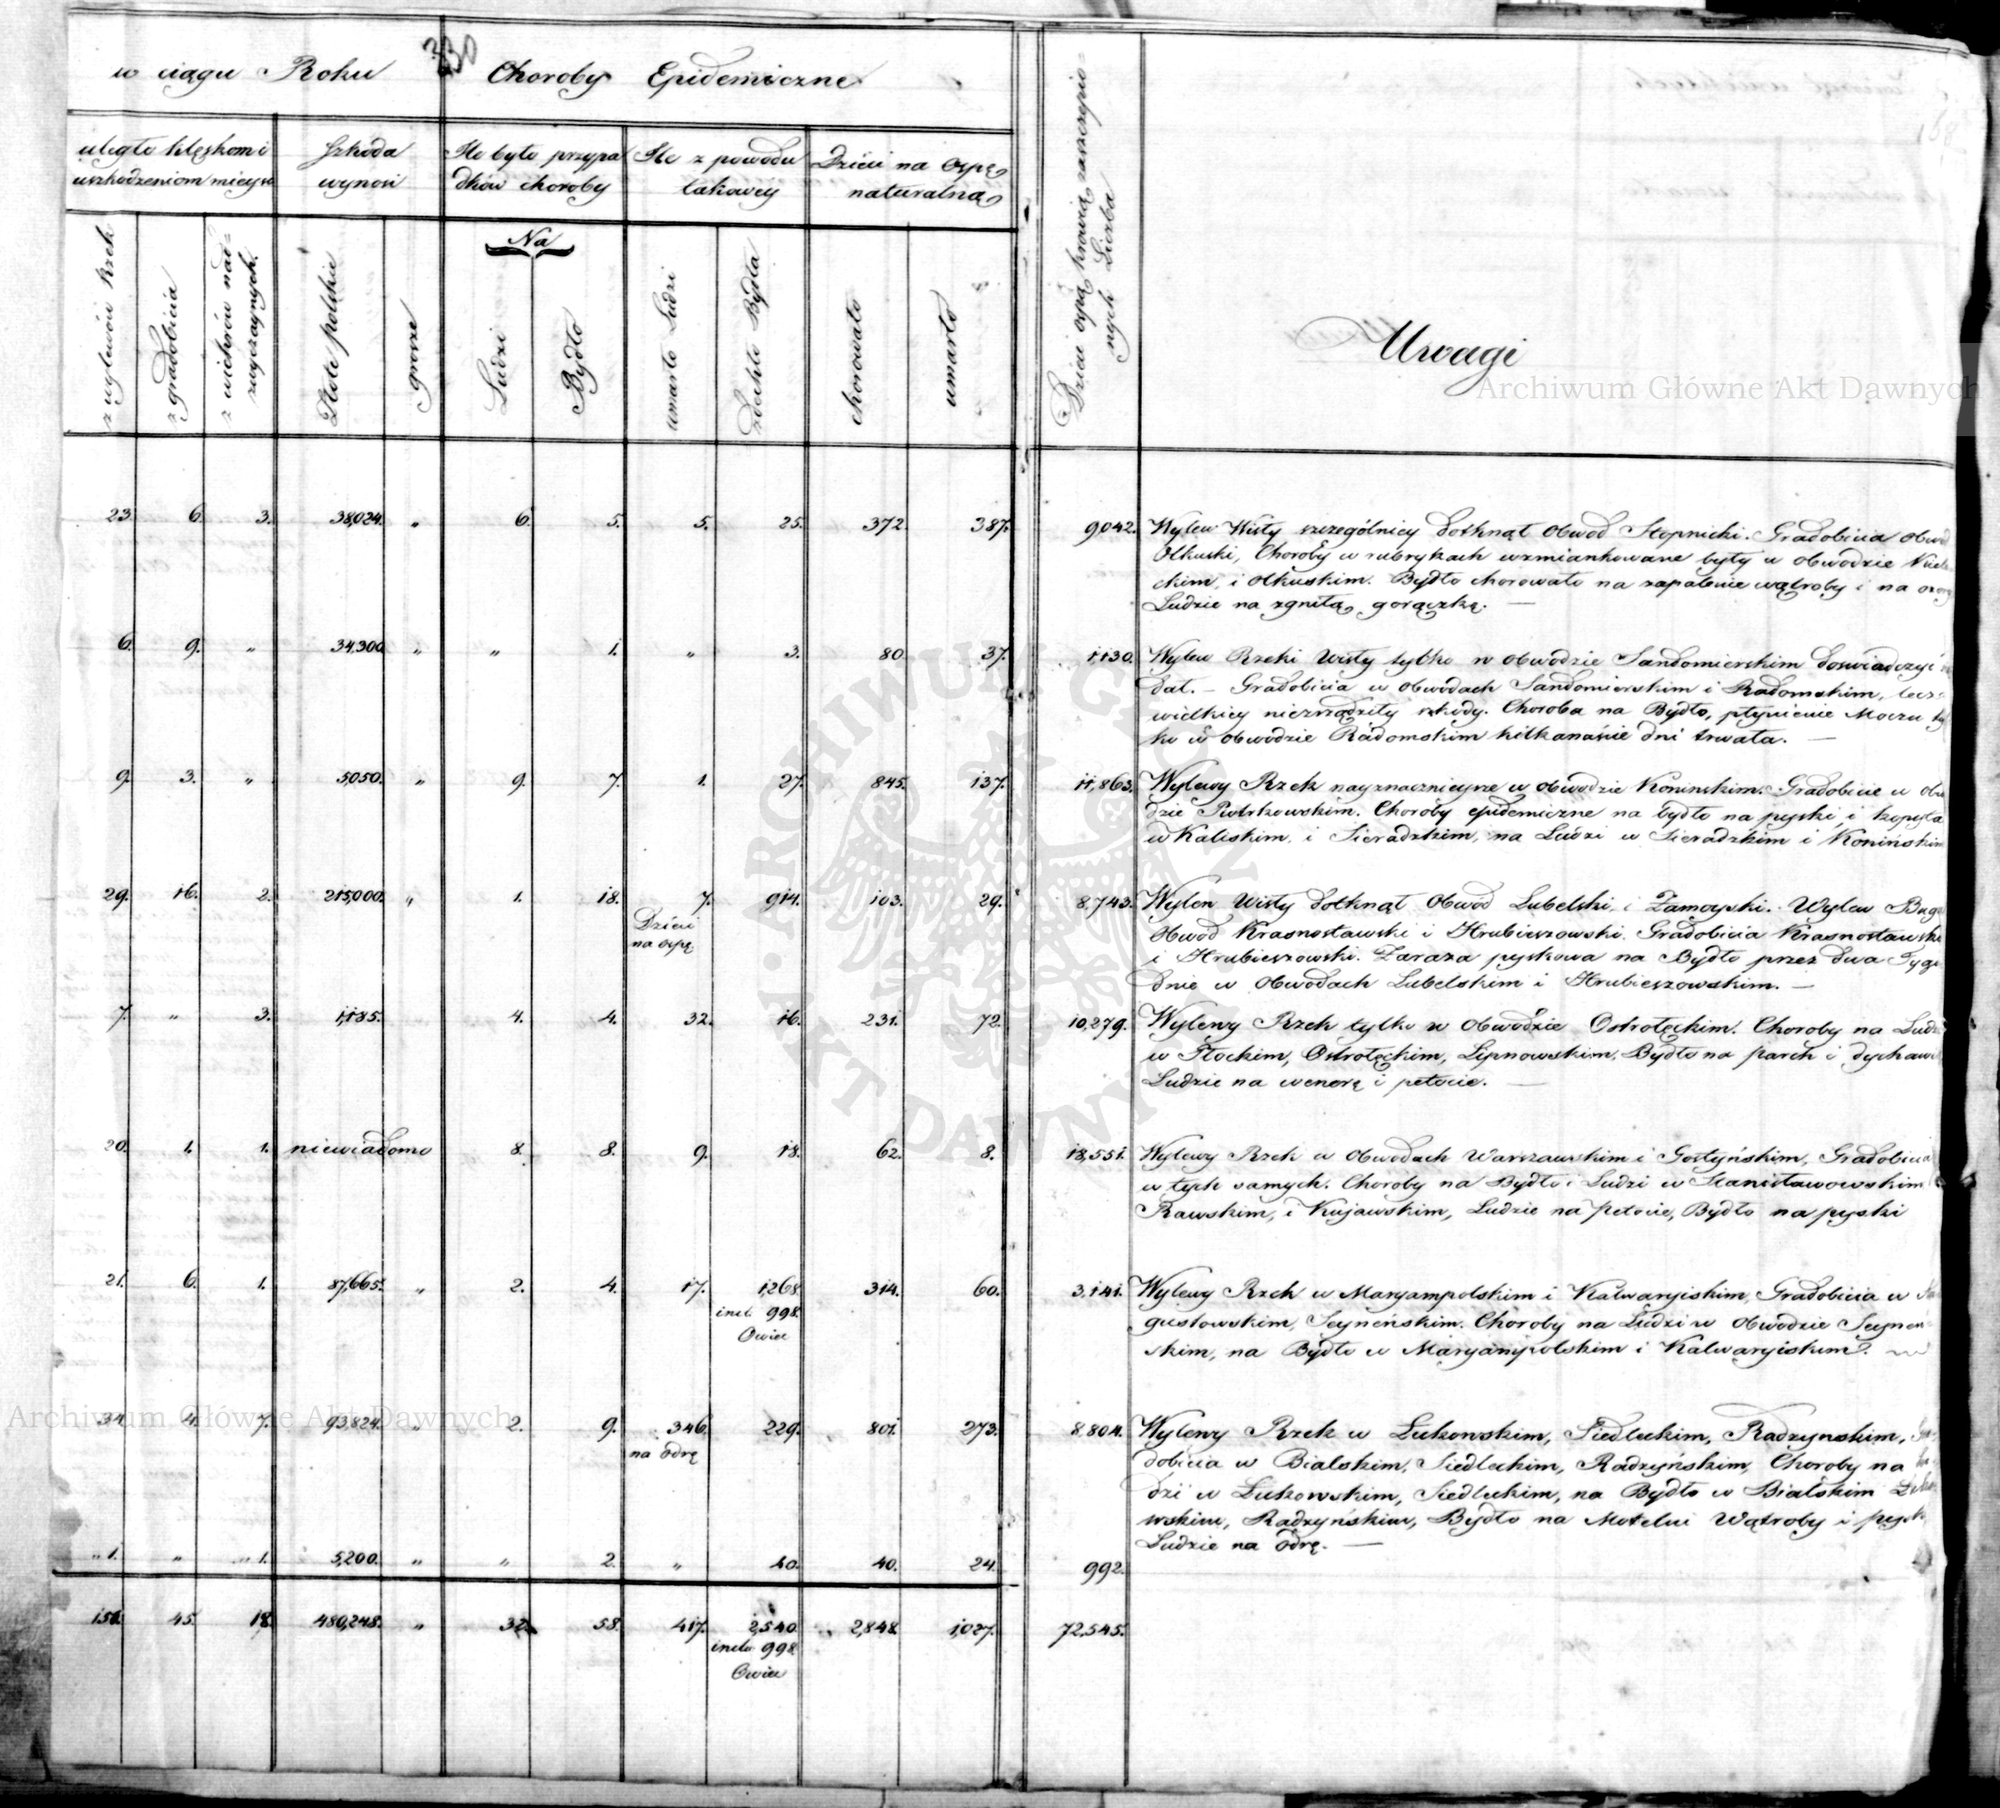 330
w ciągu Roku Choroby Epidemiczne
uległo klęskom i Szkoda Ile było przypa Ile z powodu Dzieci na Ospę
uszkodzeniom mieysc wynosi dków choroby takowey naturalną
Na
z wylewów Rzek
z gradobicia
z wichrów nad=
zwyczaynych.
Złote polskie
grosze
Ludzi
Bydło
umarło Ludzi
zdechło Bydła
chorowało
umarło
Dzieci ospą krowią zaszczepio-
nych Liczba
Uwagi
Archiwum Główne Akt Dawnych
23. 6. 3. 38,024. „ 6. 5. 5. 25. 372. 387. 9042. Wylew Wisły szczególniey dotknął Obwód Stopnicki. Gradobicia
Olkuski, Choroby w rubrykach wzmiankowane były w obwodzie
ckim, i Olkuskim. Bydło chorowało na zapalenie wątroby i na
Ludzie na zgniłą gorączkę. —
6. 9. „ 34,300. „ „ 1. „ 3. 80. 37. 1,130. Wylew Rzeki Wisły tylko w Obwodzie Sandomierskim doswiadczyć
dał. – Gradobicia w Obwodach Sandomierskim i Radomskim, lecz
wielkiey niezrządziły szkody. Choroba na Bydło, płynienie Moczu
ko w Obwodzie Radomskim kilkanaście dni trwała. —
9. 3. „ 5,050. „ 9. 7. 1. 27. 845. 137. 11,863. Wylewy Rzek nayznacznieysze w Obwodzie Koninskim. Gradobicie w
dzie Piotrkowskim. Choroby epidemiczne na bydło na pyski i kopyta
w Kaliskim, i Sieradzkim, na Ludzi w Sieradzkim i Konińskim
29. 16. 2. 215,000. „ 1. 18. 7. 914. 103. 29. 8,743. Wylew Wisły dotknął Obwód Lubelski i Zamoyski. Wylew
Dzieci
na ospę
Obwód Krasnostawski i Hrubieszowski. Gradobicia
i Hrubieszowski. Zaraza pyskowa na Bydło przez dwa
dnie w Obwodach Lubelskim i Hrubieszowskim. —
7. „ 3. 1,185. 4. 4. 32. 16. 231. 72. 10,279. Wylewy Rzek tylko w Obwodzie Ostrołęckim. Choroby na
w Płockim, Ostrołęckim, Lipnowskim, Bydło na parch i
Ludzie na wenerę i petocie. —
20. 1. 1. niewiadomo 8. 8. 9. 18. 62. 8. 18,551. Wylewy Rzek w Obwodach Warszawskim i Gostyńskim, Gradobicia
w tych samych. Choroby na Bydło i Ludzi w Stanisławowskim
Rawskim, i Kujawskim, Ludzie na petocie, Bydło na pyski
21. 6. 1. 87,665. „ 2. 4. 17. 1,268. 314. 60. 3,141. Wylewy Rzek w Maryampolskim i Kalwaryiskim, Gradobicia w
incl. 998.
Owiec
gustowskim, Seyneńskim. Choroby na Ludzi w Obwodzie
skim, na Bydło w Maryampolskim i Kalwaryiskim.
34. 4. 7. 93,824. „ 2. 9. 346. 229. 801. 273. 8,804. Wylewy Rzek w Łukowskim, Siedleckim, Radzynskim,
na odrę
dobicia w Bialskim, Siedleckim, Radzyńskim, Choroby na
dzi w Łukowskim, Siedleckim, na Bydło w Bialskim
wskim, Radzyńskim, Bydło na Motelice Wątroby i
Ludzie na Odrę. —
„ 1. „ „ 1. 5,200. „ „ 2. „ 40. 40. 24. 992.
150. 45. 18. 480,248. „ 32. 58. 417. 2,540. 2,848. 1,027. 72,545.
incl. 998.
Owiec
Archiwum Główne Akt Dawnych
ARCHIWUM GŁÓWNE AKT DAWNYCH